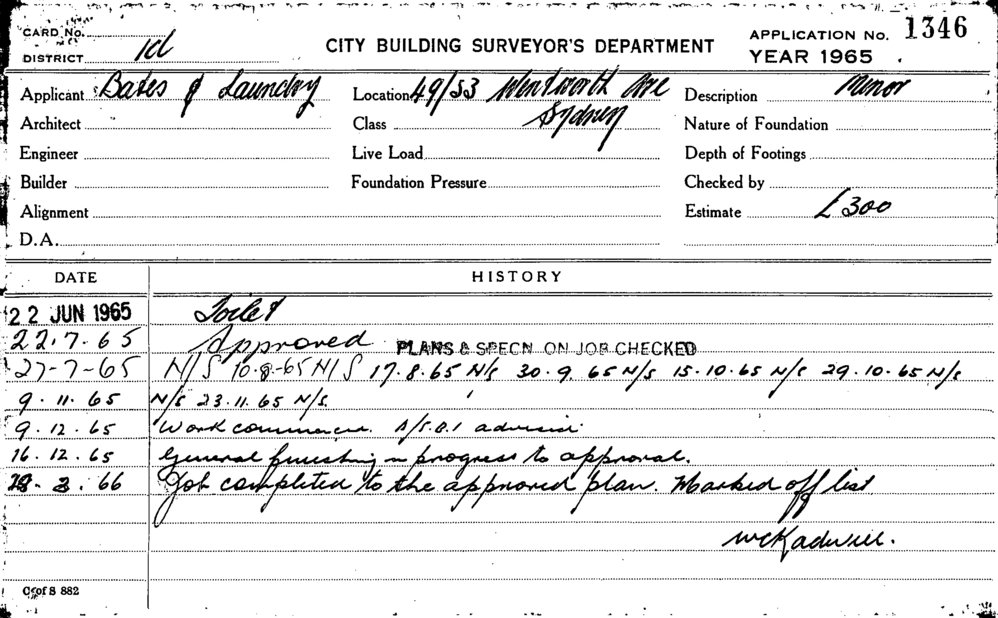 CARD No.
APPLICATION No. 1346
CITY BUILDING SURVEYOR'S DEPARTMENT
YEAR 1965
DISTRICT
Applicant Bates & Laundry Location 49/53 Wentworth Ave Description Minor
Architect Class Sydney Nature of Foundation
Engineer Live Load Depth of Footings
Builder Foundation Pressure Checked by
Alignment Estimate £300
D.A.
DATE HISTORY
22 JUN 1965 Toilet
22.7.65 Approved PLANS & SPECN ON JOB CHECKED
27-7-65 N/S 10-8-65 N/S 17.8.65 N/S 30.9.65 N/S 15.10.65 N/S 29.10.65 N/S
9.11.65 N/S 23.11.65 N/S.
9.12.65 Work commenced.
16.12.65 General finishing in progress to approval.
3.66 Job completed to the approved plan. Marked off list
CofS 882